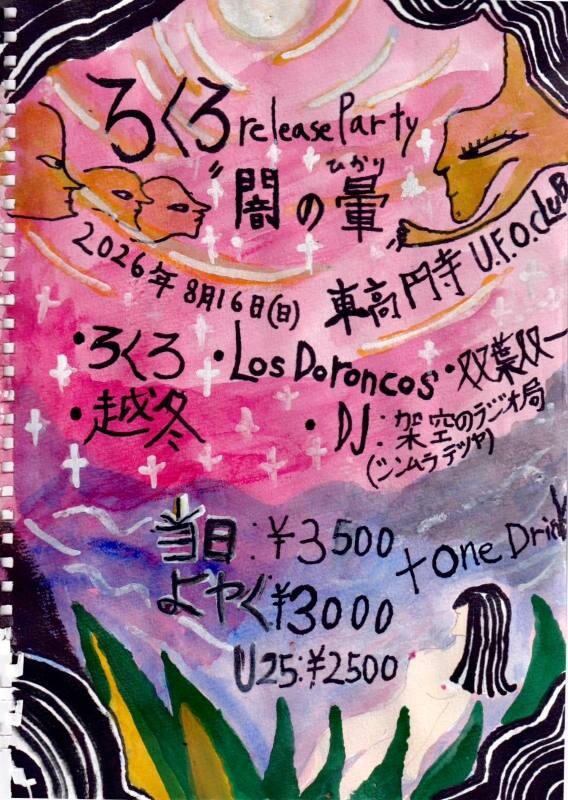 ろくろ release Party
ひかり
"闇の暈
2026年 8月16日(日) 東高円寺 U.F.O. cluB
・ろくろ ・Los Doroncos ・双葉双一
・越冬 ・DJ: 架空のラジオ局
(シンムラテツヤ)
当日:¥3500
よやく¥3000
+ one Drink
U25:¥2500